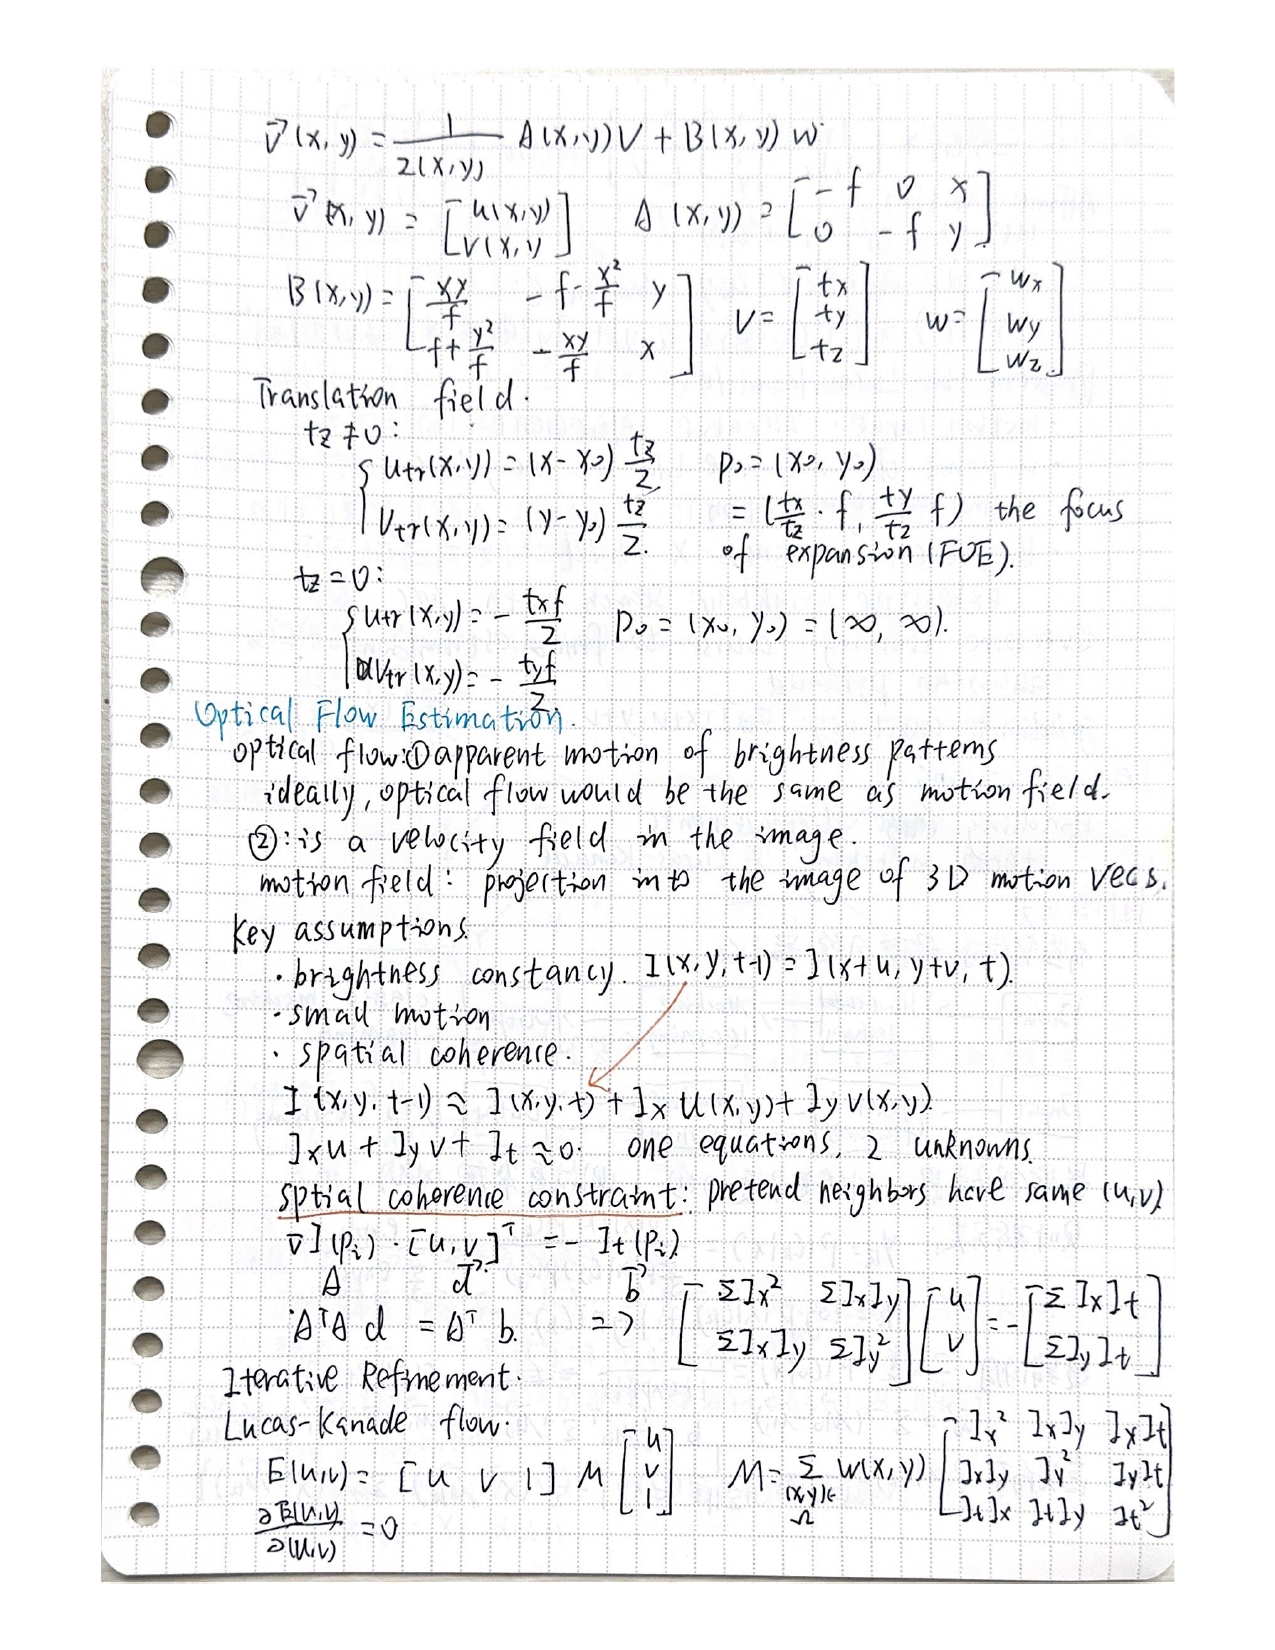 v⃗(x,y) = 1/Z(x,y) A(x,y)V + B(x,y)w
v⃗(x,y) = [u(x,y); v(x,y)] A(x,y) = [-f 0 x; 0 -f y]
B(x,y) = [xy/f -f-x²/f y; f+y²/f -xy/f x] V = [tx; ty; tz] w = [wx; wy; wz]
Translation field.
tz ≠ 0:
{ utr(x,y) = (x-x₀) tz/Z p₀ = (x₀, y₀)
vtr(x,y) = (y-y₀) tz/Z. = (tx/tz · f, ty/tz f) the focus
of expansion (FOE).
tz = 0:
{ utr(x,y) = - txf/Z p₀ = (x₀, y₀) = (∞, ∞).
vtr(x,y) = - tyf/Z
Optical Flow Estimation.
optical flow: ① apparent motion of brightness patterns
ideally, optical flow would be the same as motion field.
②: is a velocity field in the image.
motion field: projection into the image of 3D motion vecs.
key assumptions.
· brightness constancy. I(x,y,t-1) = I(x+u, y+v, t).
· small motion
· spatial coherence.
I(x,y,t-1) ≈ I(x,y,t) + Ix u(x,y) + Iy v(x,y).
Ixu + Iyv + It ≈ 0. one equations, 2 unknowns.
sptial coherence constraint: pretend neighbors have same (u,v)
∇I(pi) · [u,v]ᵀ = - It(pi)
A d⃗ b⃗
AᵀA d = Aᵀ b. => [ΣIx² ΣIxIy; ΣIxIy ΣIy²] [u; v] = - [ΣIxIt; ΣIyIt]
Iterative Refinement.
Lucas-Kanade flow.
E(u,v) = [u v 1] M [u; v; 1] M = Σ(x,y)∈Ω w(x,y) [Ix² IxIy IxIt; IxIy Iy² IyIt; ItIx ItIy It²]
∂E(u,v)/∂(u,v) = 0